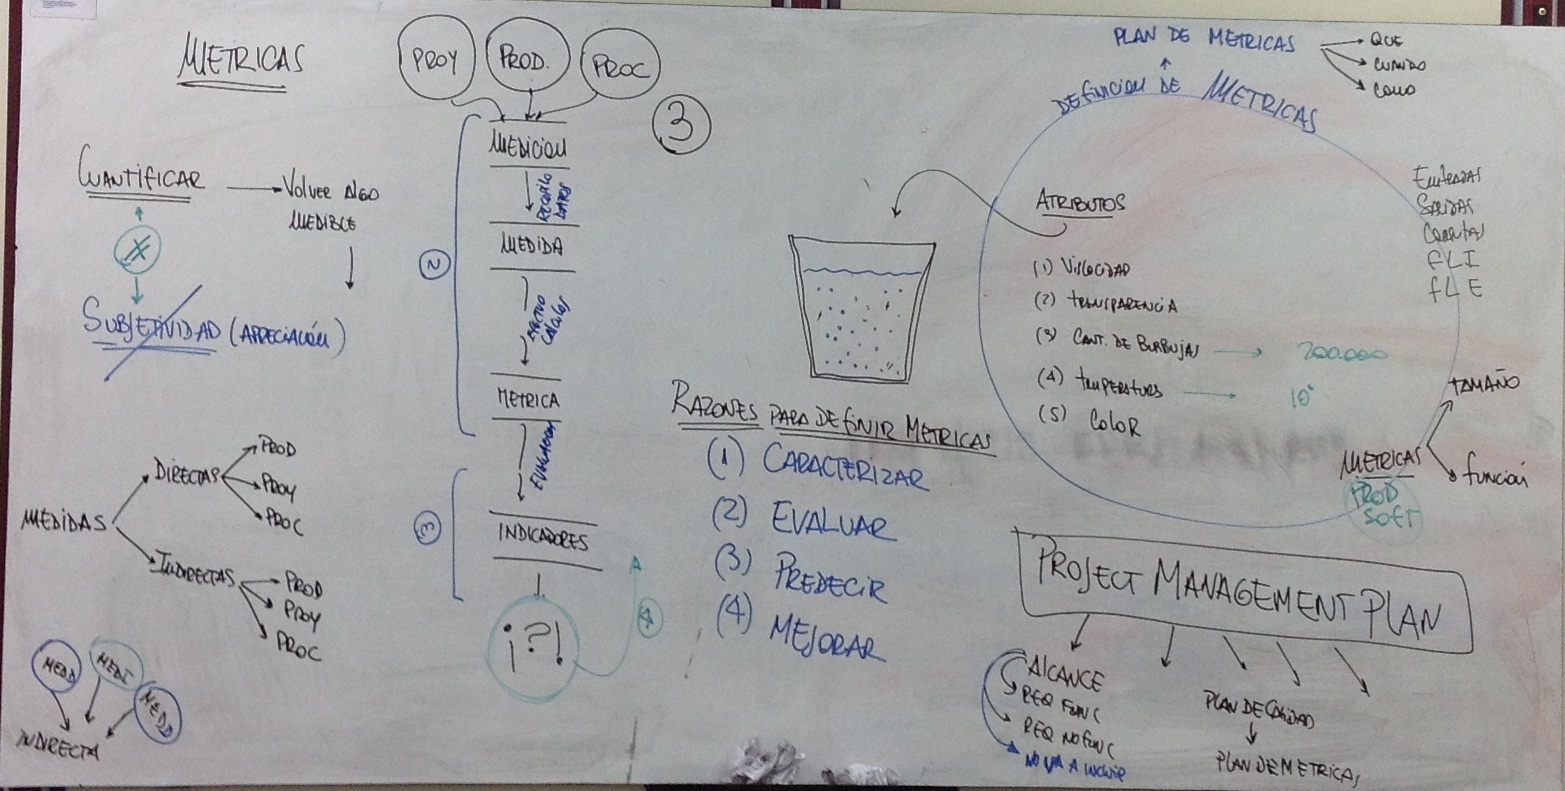 METRICAS
PROY
PROD.
PROC
3
CUANTIFICAR
VOLVER ALGO
MEDIBLE
SUBJETIVIDAD (APRECIACIÓN)
MEDIDAS
DIRECTAS
PROD
PROY
PROC
INDIRECTAS
PROD
PROY
PROC
MEDD
MEDI
MEDD
INDIRECTA
MEDICION
RECOPILO
DATOS
MEDIDA
EFECTUO
CALCULOS
METRICA
INDICADORES
¡?!
RAZONES PARA DEFINIR METRICAS
(1) CARACTERIZAR
(2) EVALUAR
(3) PREDECIR
(4) MEJORAR
PLAN DE METRICAS
QUE
CUANDO
COMO
DEFINICION DE METRICAS
ATRIBUTOS
(1) VISCOSIDAD
(2) TRANSPARENCIA
(3) CANT. DE BURBUJAS
200.000
(4) TEMPERATURA
10°
(5) COLOR
ENTRADAS
SALIDAS
CONSULTAS
FLI
FLE
METRICAS
PROD
SOFT
TAMAÑO
FUNCIÓN
PROJECT MANAGEMENT PLAN
ALCANCE
REQ FUNC
REQ NO FUNC
NO VA A INCLUIR
PLAN DE CALIDAD
PLAN DE METRICAS